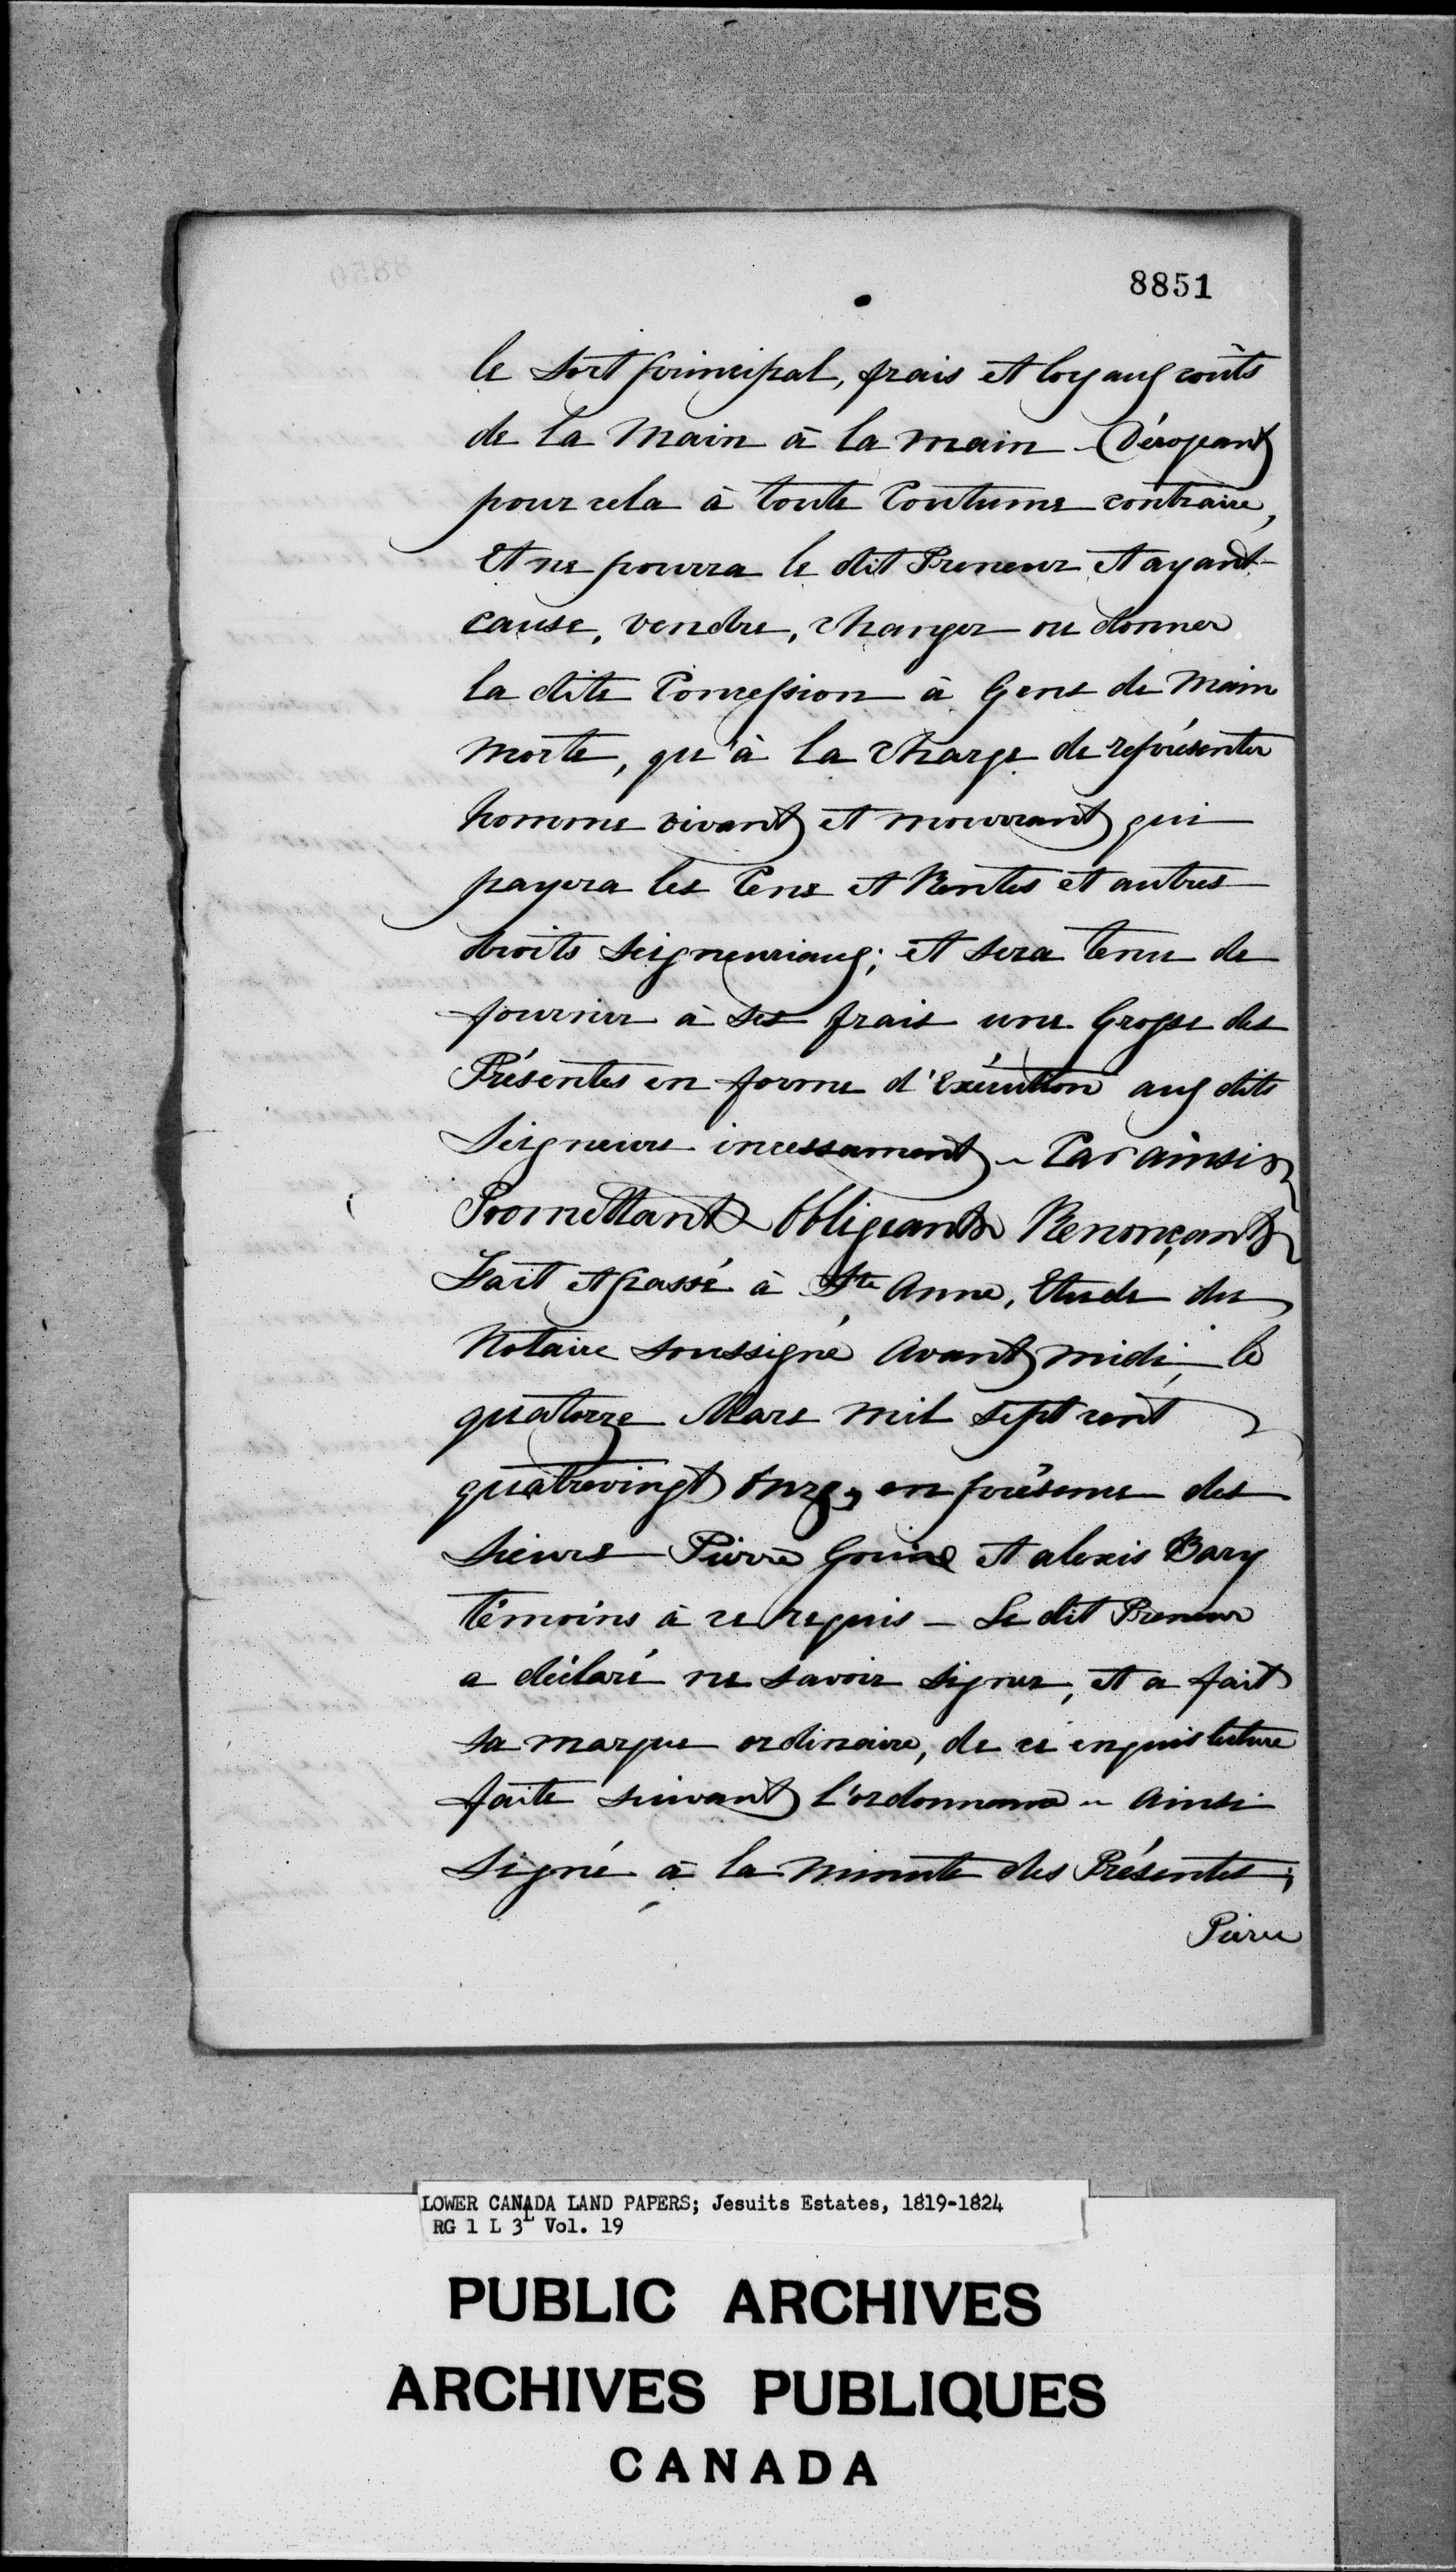 8851
le sort principal, frais et loyaux coûts
de la main à la main – Dérogeant
pour cela à toute Coutume contraire,
Et ne pourra le dit Preneur et ayant
cause, vendre, changer ou donner
la dite Concession à Gens de Main
morte, qu'à la charge de représenter
homme vivant et mourrant qui
payera les Cens et Rentes et autres
droits Seigneuriaux; et sera tenu de
fournir à ses frais une Grosse des
Présentes en forme d'Exécution aux dits
Seigneurs incessament – Car ainsi
Promettant Obligeant Renonçant
Fait et passé à Ste Anne, Etude du
Notaire soussigné avant midi, le
quatorze Mars mil sept cent
quatrevingt onze, en présence des
Sieurs Pierre et alexis Bary
témoins à ce requis – Le dit Preneur
a déclaré ne savoir signer, et a fait
sa marque ordinaire, de ce enquis lecture
faite suivant l'ordonnance – Ainsi
Signé à la minute des Présentes;
Pierre
LOWER CANADA LAND PAPERS; Jesuits Estates, 1819-1824
RG 1 L 3L Vol. 19
PUBLIC ARCHIVES
ARCHIVES PUBLIQUES
CANADA